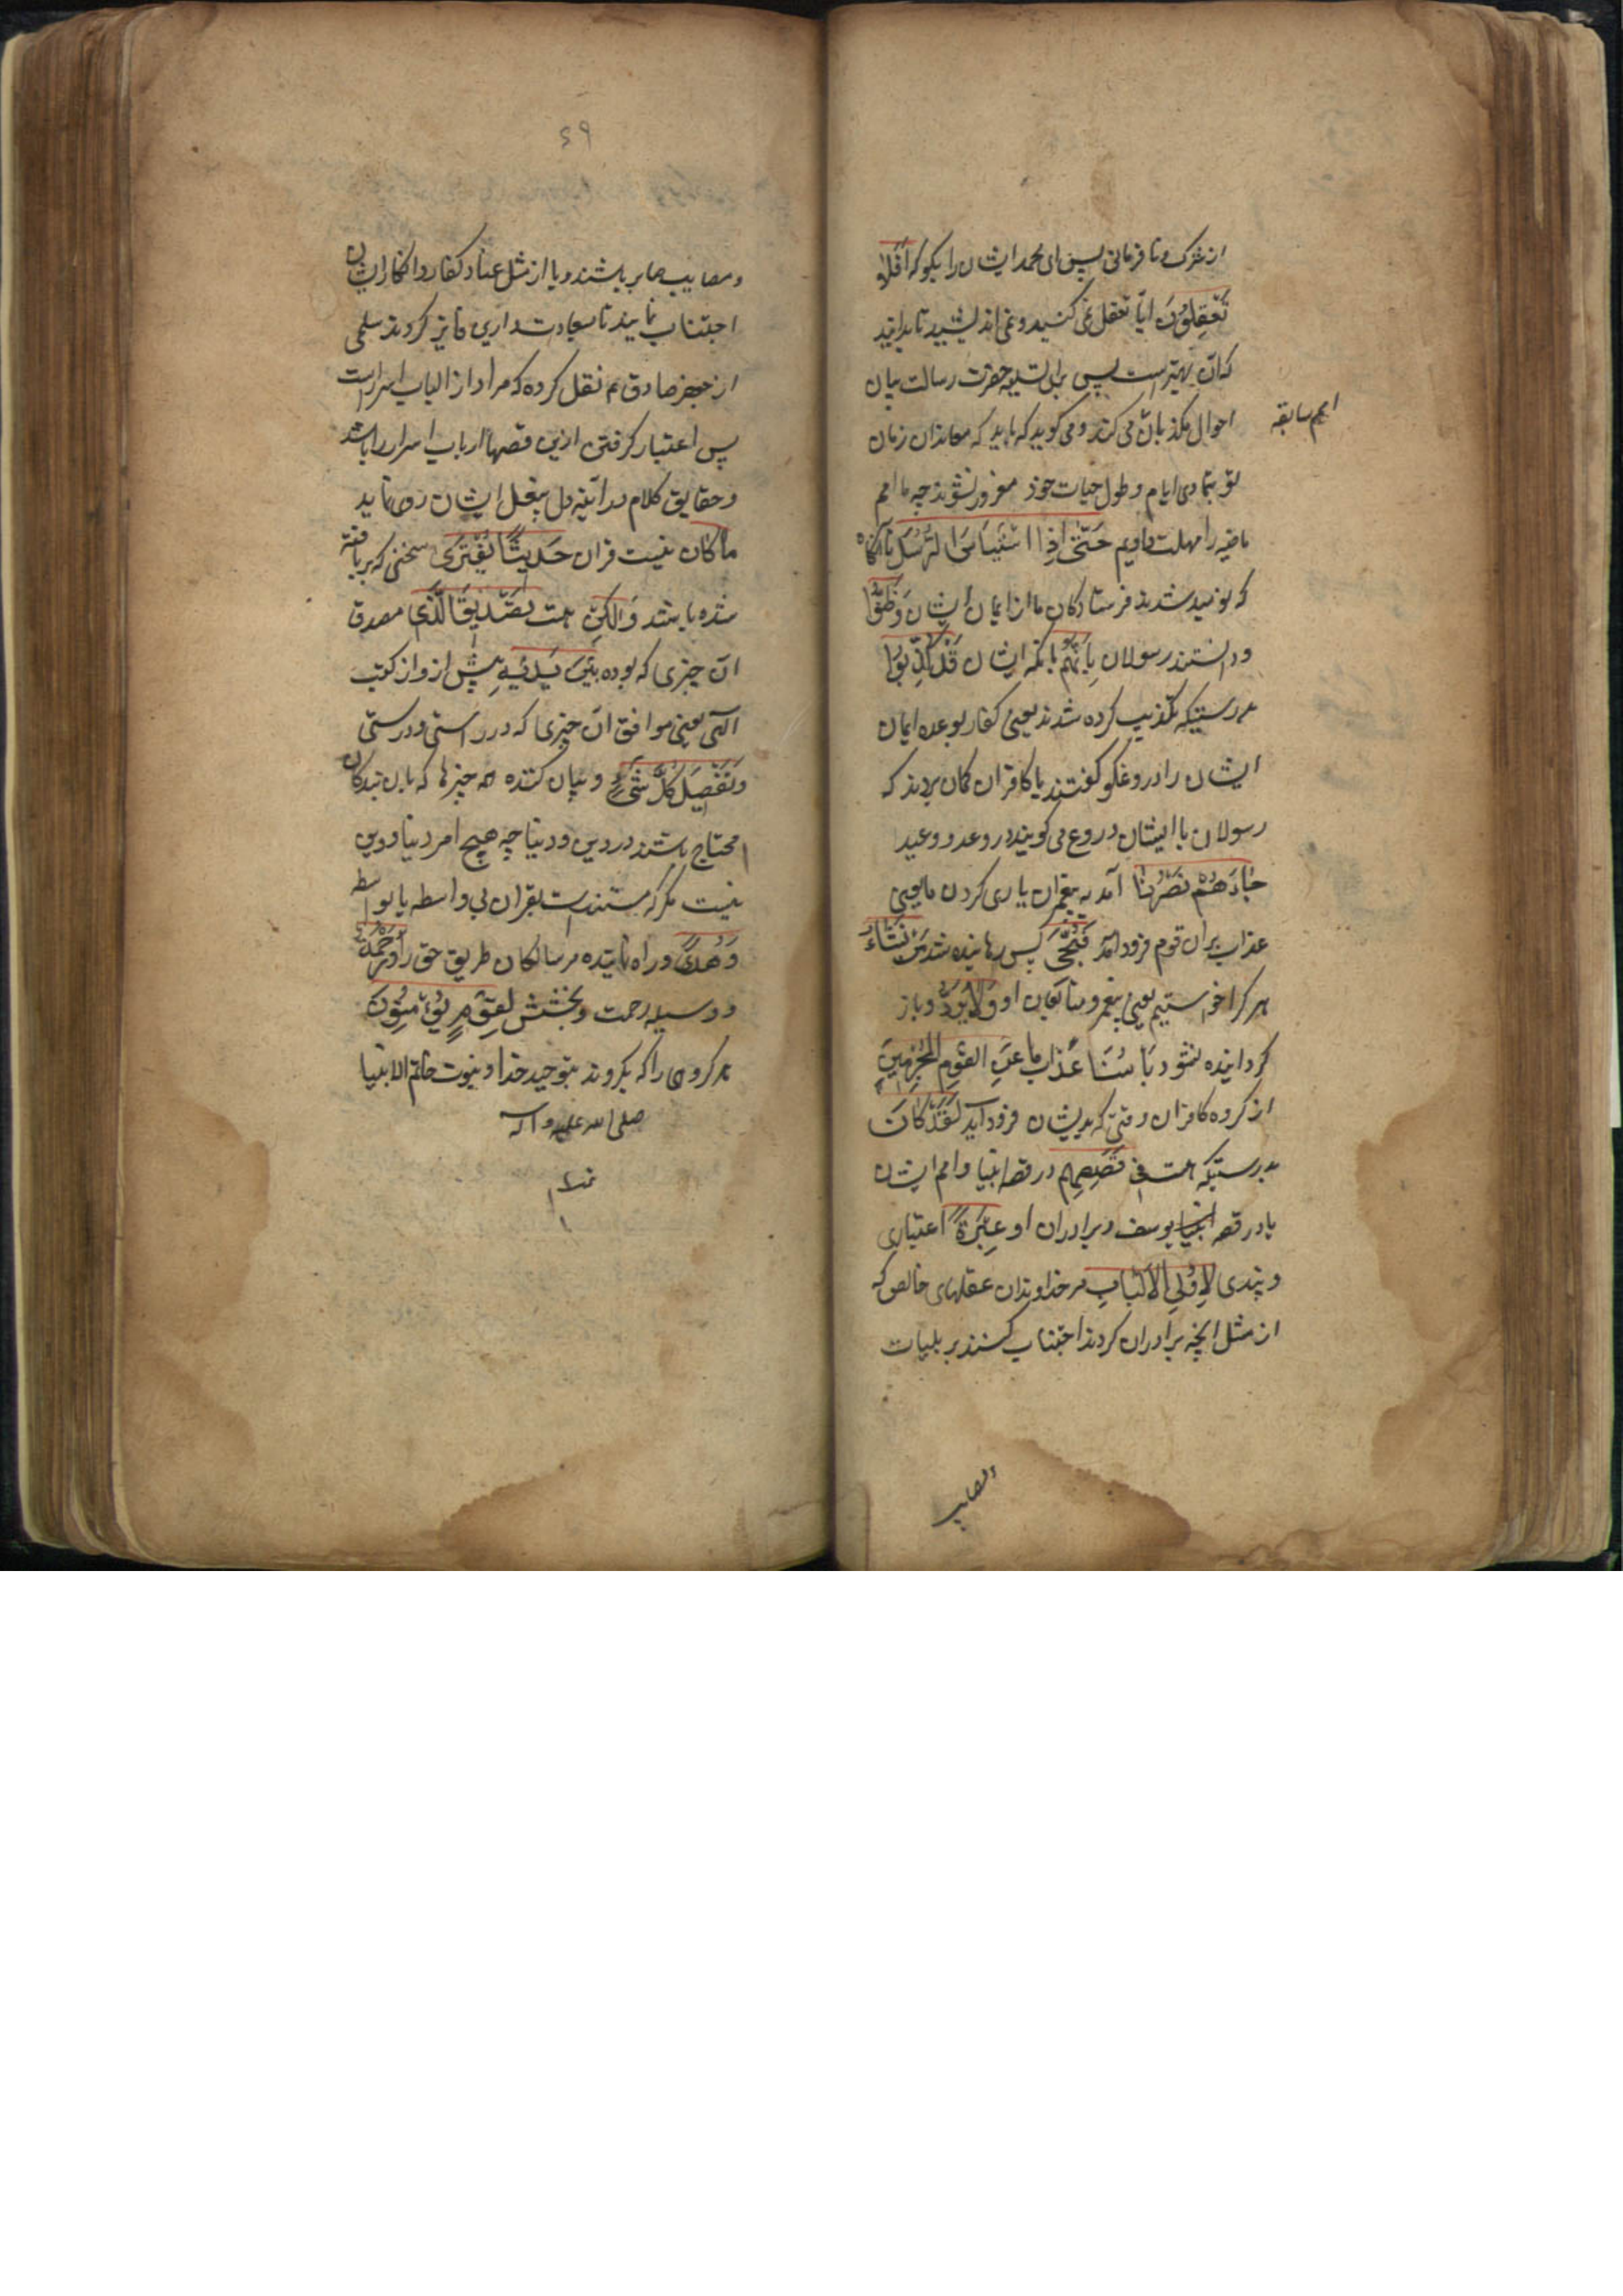 از شرک و نافرمانی پس ای محمد ایشان را بکو که أَفَلَا
تَعْقِلُونَ ایا تعقل نمی کنید و نمی اندیشید تا بدانید
که آن بهتر است پس برای تسلیه حضرت رسالت بیان
احوال مکذبان می کند و می کوید که باید که معاندان زمان
امم سابقه
تو بتمادی ایام و طول حیات خود مغرور نشوند چه ما امم
ماضیه را مهلت دادیم حَتَّى إِذَا اسْتَيْأَسَ الرُّسُلُ تا آنکاه
که نومید شدند فرستادکان ما از ایمان ایشان وَظَنُّوا
و دانستند رسولان أَنَّهُمْ بانکه ایشان قَدْ كُذِبُوا
بدرستیکه تکذیب کرده شدند یعنی کفار بوعده ایمان
ایشان را دروغکو کفتند یا کافران کمان بردند که
رسولان با ایشان دروغ می کویند در وعد و وعید
جَاءَهُمْ نَصْرُنَا آمد به پیغمبران یاری کردن ما یعنی
عذاب بران قوم فرود آمد فَنُجِّيَ پس رهانیده شد مَنْ نَشَاءُ
هر کرا خواستیم یعنی پیغمبر و متابعان او وَلَا يُرَدُّ و باز
کردانیده نشود بَأْسُنَا عذاب ما عَنِ الْقَوْمِ الْمُجْرِمِينَ
از کروه کافران وقتی که بدیشان فرود آید لَقَدْ كَانَ
بدرستیکه هست فِي قَصَصِهِمْ در قصه انبیا و امم ایشان
یا در قصه یوسف و برادران او عِبْرَةٌ اعتباری
و پندی لِأُولِي الْأَلْبَابِ مر خداوندان عقلهای خالص که
از مثل انچه برادران کردند اجتناب کنند بر بلیات
و مصایب صابر باشند و یا از مثل عناد کفار و انکار ایشان
اجتناب نمایند تا بسعادت دارین فایز کردند سلمی
از جعفر صادق ع م نقل کرده که مراد از الباب اسرار است
پس اعتبار کرفتن ازین قصها ارباب اسرار را باشد
و حقایق کلام در آئینه دل بیغل ایشان رو نماید
مَا كَانَ نیست قران حَدِيثًا يُفْتَرَى سخنی که بر بافته
شده باشد وَلَكِنْ هست تَصْدِيقَ الَّذِي مصدق
آن چیزی که بوده بَيْنَ يَدَيْهِ پیش ازو از کتب
الهی یعنی موافق آن چیزی که در راستی و درستی
وَتَفْصِيلَ كُلِّ شَيْءٍ و بیان کننده همه چیزها که بان بندکان
محتاج باشند در دین و دنیا چه هیچ امر دنیا و دین
نیست مکر که مستند است بقران بی واسطه یا بواسطه
وَهُدًى و راه نماینده مر سالکان طریق حق را وَرَحْمَةً
و وسیله رحمت و بخشش لِقَوْمٍ يُؤْمِنُونَ
مر کروهی را که بکروند بتوحید خدا و نبوت خاتم الانبیا
صلی الله علیه و اله